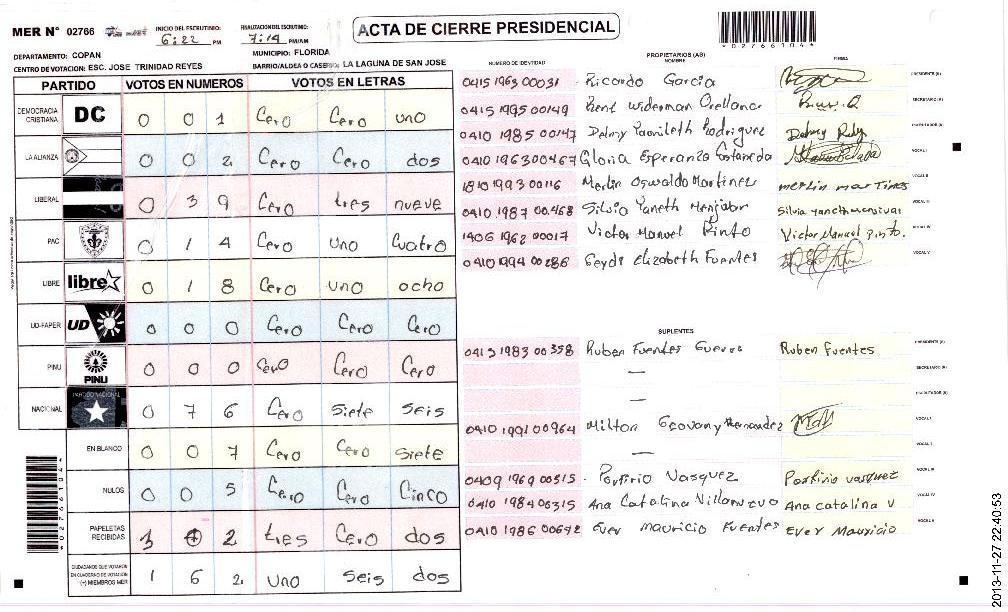 MER N° 02766 INICIO DEL ESCRUTINIO: 6:22 PM FINALIZACION DEL ESCRUTINIO: 7:14 PM/AM ACTA DE CIERRE PRESIDENCIAL
*0276610 4*
DEPARTAMENTO: COPAN MUNICIPIO: FLORIDA
CENTRO DE VOTACION: ESC. JOSE TRINIDAD REYES BARRIO/ALDEA O CASERIO: LA LAGUNA DE SAN JOSE
PARTIDO VOTOS EN NUMEROS VOTOS EN LETRAS
DEMOCRACIA CRISTIANA DC 0 0 1 Cero Cero uno
LA ALIANZA 0 0 2 Cero Cero dos
LIBERAL 0 3 9 Cero tres nueve
PAC 0 1 4 Cero uno Cuatro
LIBRE libre 0 1 8 Cero uno ocho
UD-FAPER UD 0 0 0 Cero Cero Cero
PINU PINU 0 0 0 Cero Cero Cero
NACIONAL PARTIDO NACIONAL 0 7 6 Cero Siete seis
EN BLANCO 0 0 7 Cero Cero siete
NULOS 0 0 5 Cero Cero Cinco
PAPELETAS RECIBIDAS 3 0 2 tres Cero dos
CIUDADANOS QUE VOTARON EN CUADERNO DE VOTACION (+) MIEMBROS MER 1 6 2 uno seis dos
PROPIETARIOS (AS)
NUMERO DE IDENTIDAD NOMBRE FIRMA
0415 1963 00031 Ricardo Garcia PRESIDENTE (A)
0415 1995 00149 Rent Widerman Orellana SECRETARIO (A)
0410 1985 00147 Delmy Yamileth Rodriguez ESCRUTADOR (A)
0410 1963 00467 Gloria Esperanza Castaneda VOCAL I
1810 1993 00116 Merlin Oswaldo Martinez merlin martines VOCAL II
0410 1987 00468 Silvia Yaneth Menjivar Silvia yaneth menjivar VOCAL III
1406 1962 00017 Victor Manuel Pinto Victor Manuel pinto. VOCAL IV
0410 1994 00286 Geyds Elizabeth Fuentes VOCAL V
SUPLENTES
0413 1983 00358 Ruben Fuentes Guerra Ruben Fuentes PRESIDENTE (A)
— SECRETARIO (A)
— ESCRUTADOR (A)
0410 1991 00964 Milton Geovany Hernandez VOCAL I
— VOCAL II
0409 1969 00315 Porfirio Vasquez Porfirio vasquez VOCAL III
0410 1984 00315 Ana Catalina Villanuevo Ana catalina V VOCAL IV
0410 1986 00642 Ever Mauricio Fuentes Ever Mauricio VOCAL V
2013-11-27 22:40:53